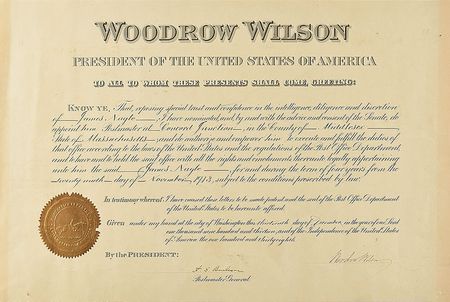 WOODROW WILSON
PRESIDENT OF THE UNITED STATES OF AMERICA
TO ALL TO WHOM THESE PRESENTS SHALL COME, GREETING:
KNOW YE, That, reposing special trust and confidence in the intelligence, diligence and discretion
of James Nagle, I have nominated, and by and with the advice and consent of the Senate, do
appoint him Postmaster at Concord Junction, in the County of Middlesex
State of Massachusetts, and do authorize and empower him to execute and fulfil the duties of
that office according to the laws of the United States and the regulations of the Post Office Department,
and to have and to hold the said office with all the rights and emoluments thereunto legally appertaining
unto him the said James Nagle for and during the term of four years from the
twenty ninth day of November, 1913, subject to the conditions prescribed by law.
In testimony whereof, I have caused these letters to be made patent and the seal of the Post Office Department
of the United States to be hereunto affixed.
Given under my hand at the city of Washington this day of December, in the year of our Lord
one thousand nine hundred and thirteen, and of the Independence of the United States
of America the one hundred and thirty eighth.
By the PRESIDENT:
Woodrow Wilson
Postmaster General.